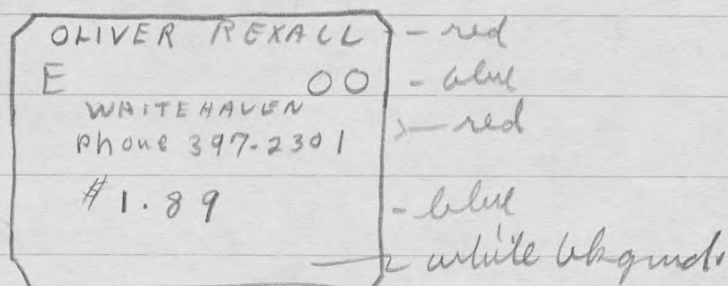 OLIVER REXALL - red
E OO - blue
WHITEHAVEN
Phone 397-2301 - red
#1.89 - blue
- white bkgrnd.